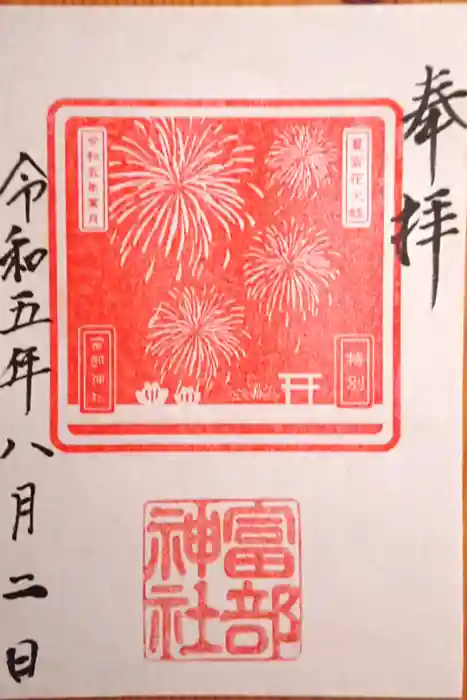 奉拝
特別
令和五年葉月
富部神社
富部神社
令和五年八月二日